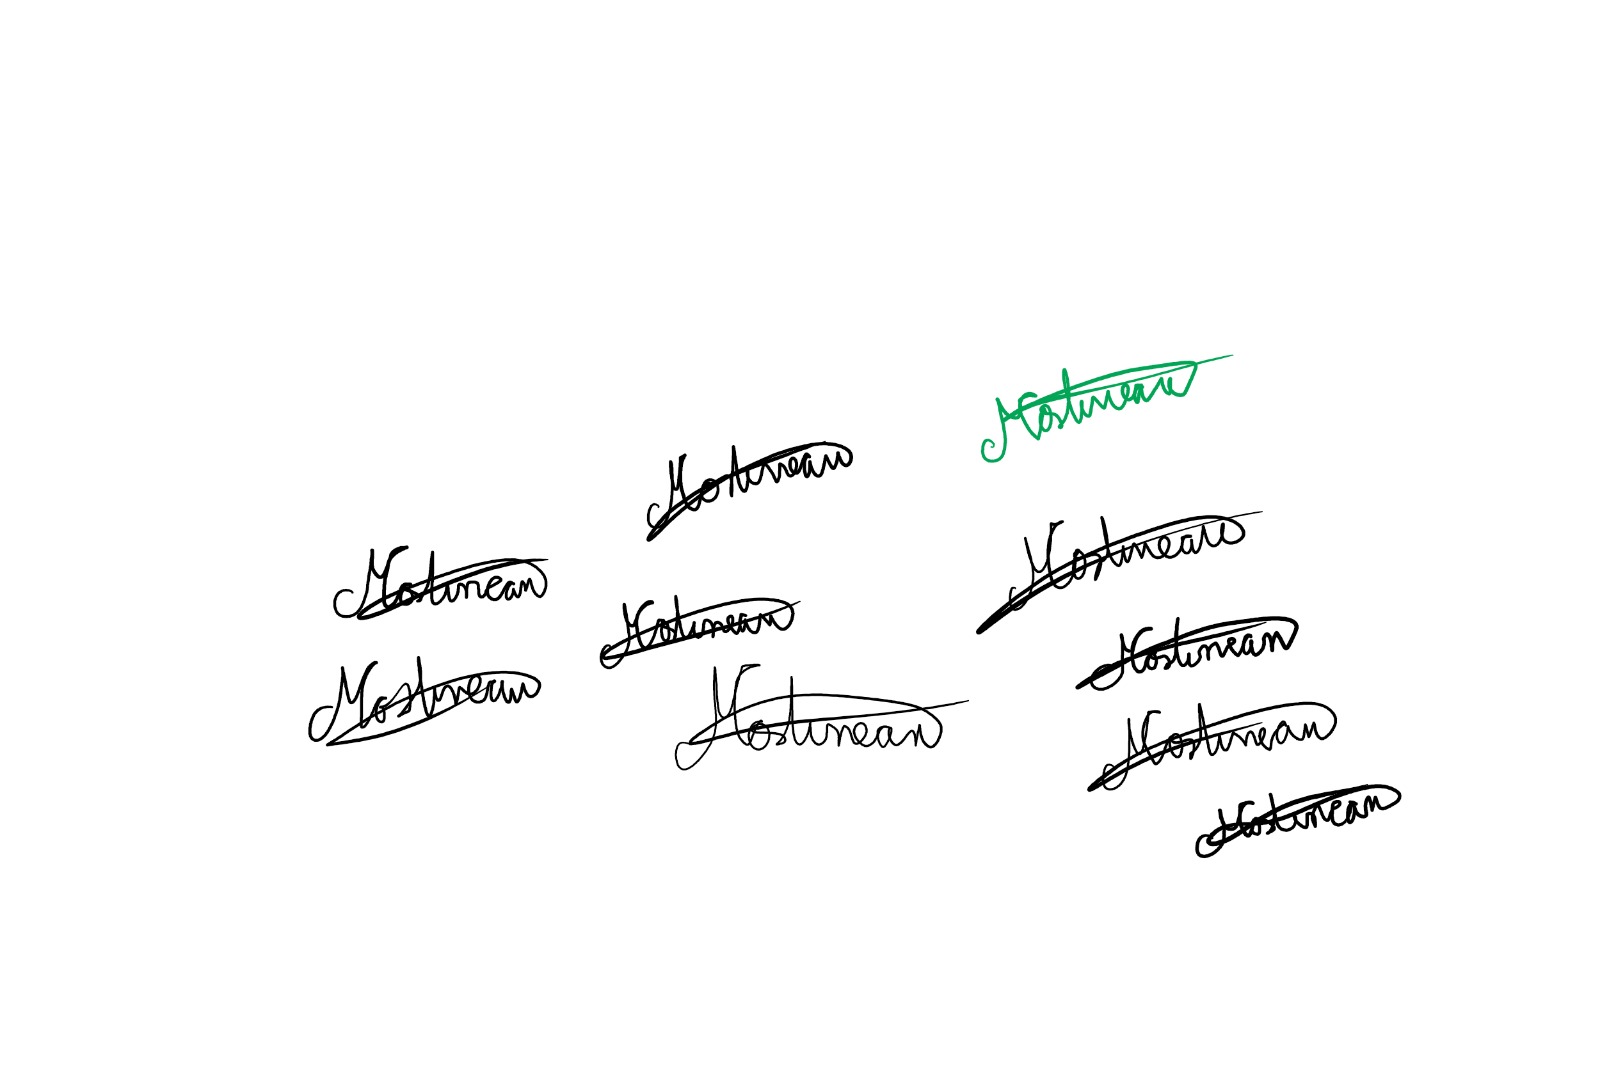 Mostinean
Mostinean
Mostinean
Mostinean
Mostinean
Mostinean
Mostinean
Mostinean
Mostinean
Mostinean